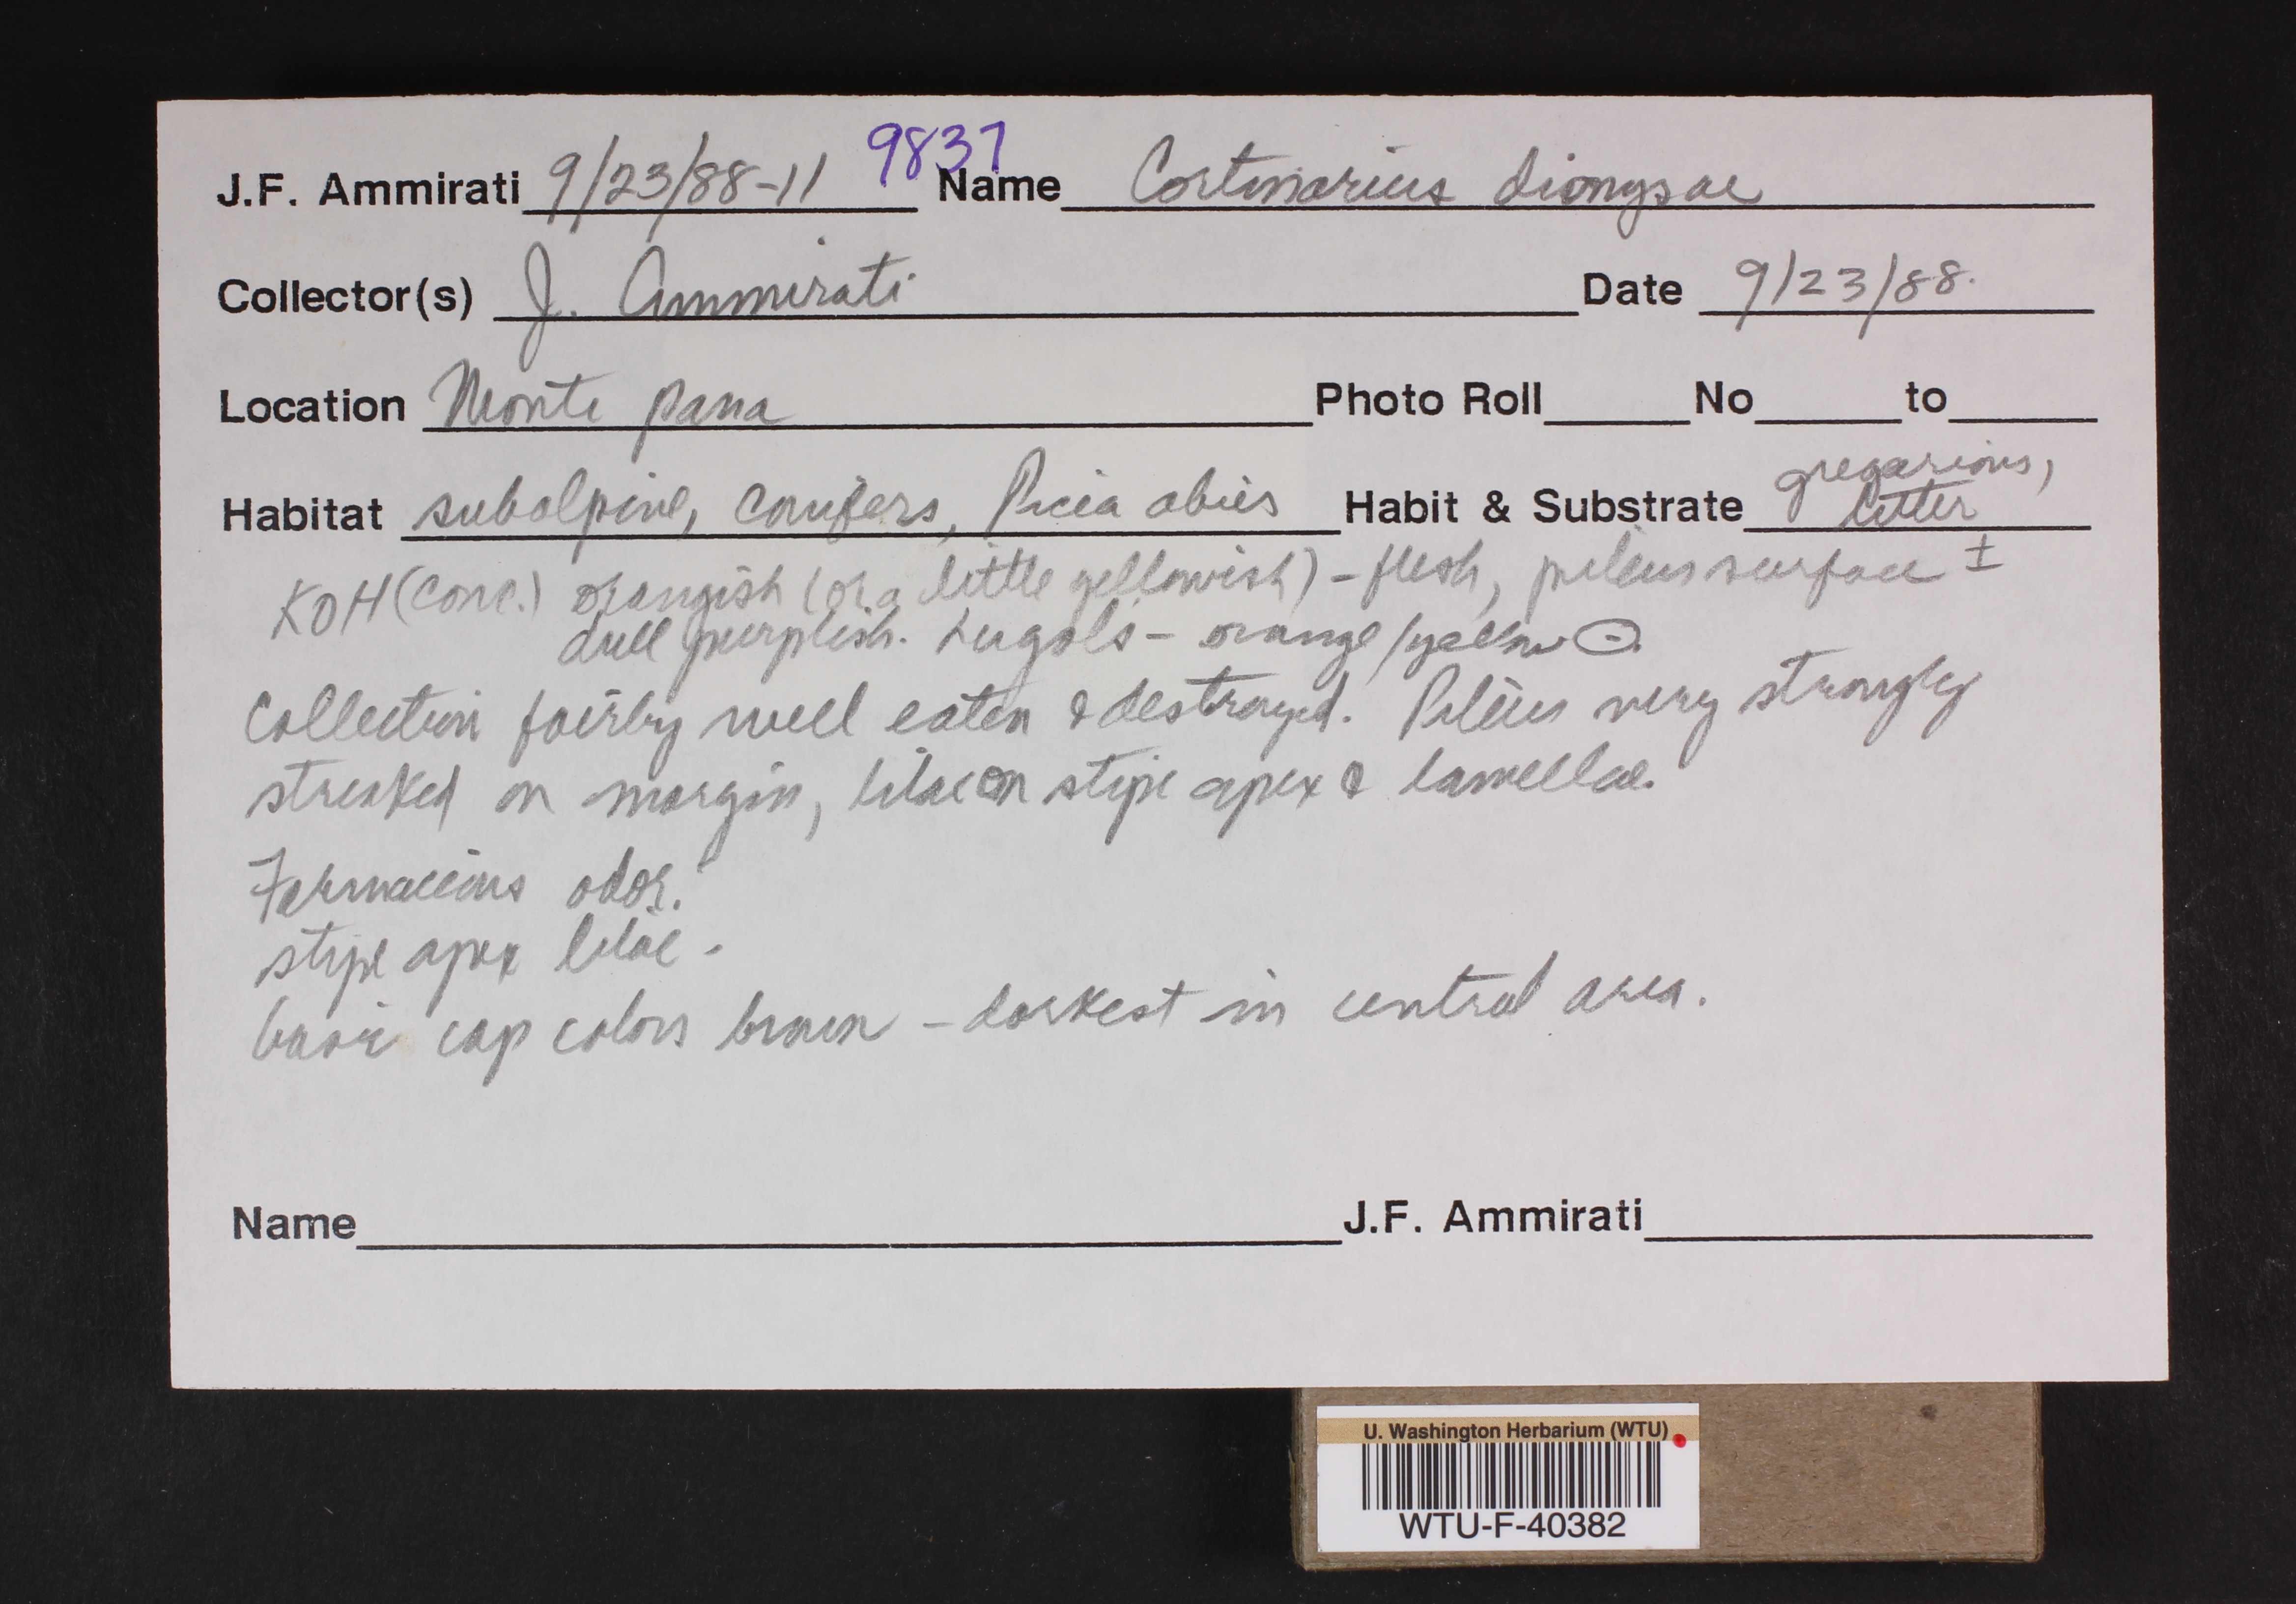 J.F. Ammirati 9/23/88-11 9837 Name Cortinarius dionysae
Collector(s) J. Ammirati Date 9/23/88.
Location Monte pana Photo Roll No to
Habitat subalpine, conifers, Picia abies Habit & Substrate gregarious, litter
KOH (conc.) orangish (or a little yellowish) - flesh, pileus surface ±
dull purplish. Lugols - orange/yellow ⊖.
Collection fairly well eaten & destroyed. Pileus very strongly
streaked on margin, lilac on stipe apex & lamellae.
Farinaceous odor.
stipe apex lilac.
basic cap colors brown - darkest in central area.
Name J.F. Ammirati
U. Washington Herbarium (WTU)
WTU-F-40382